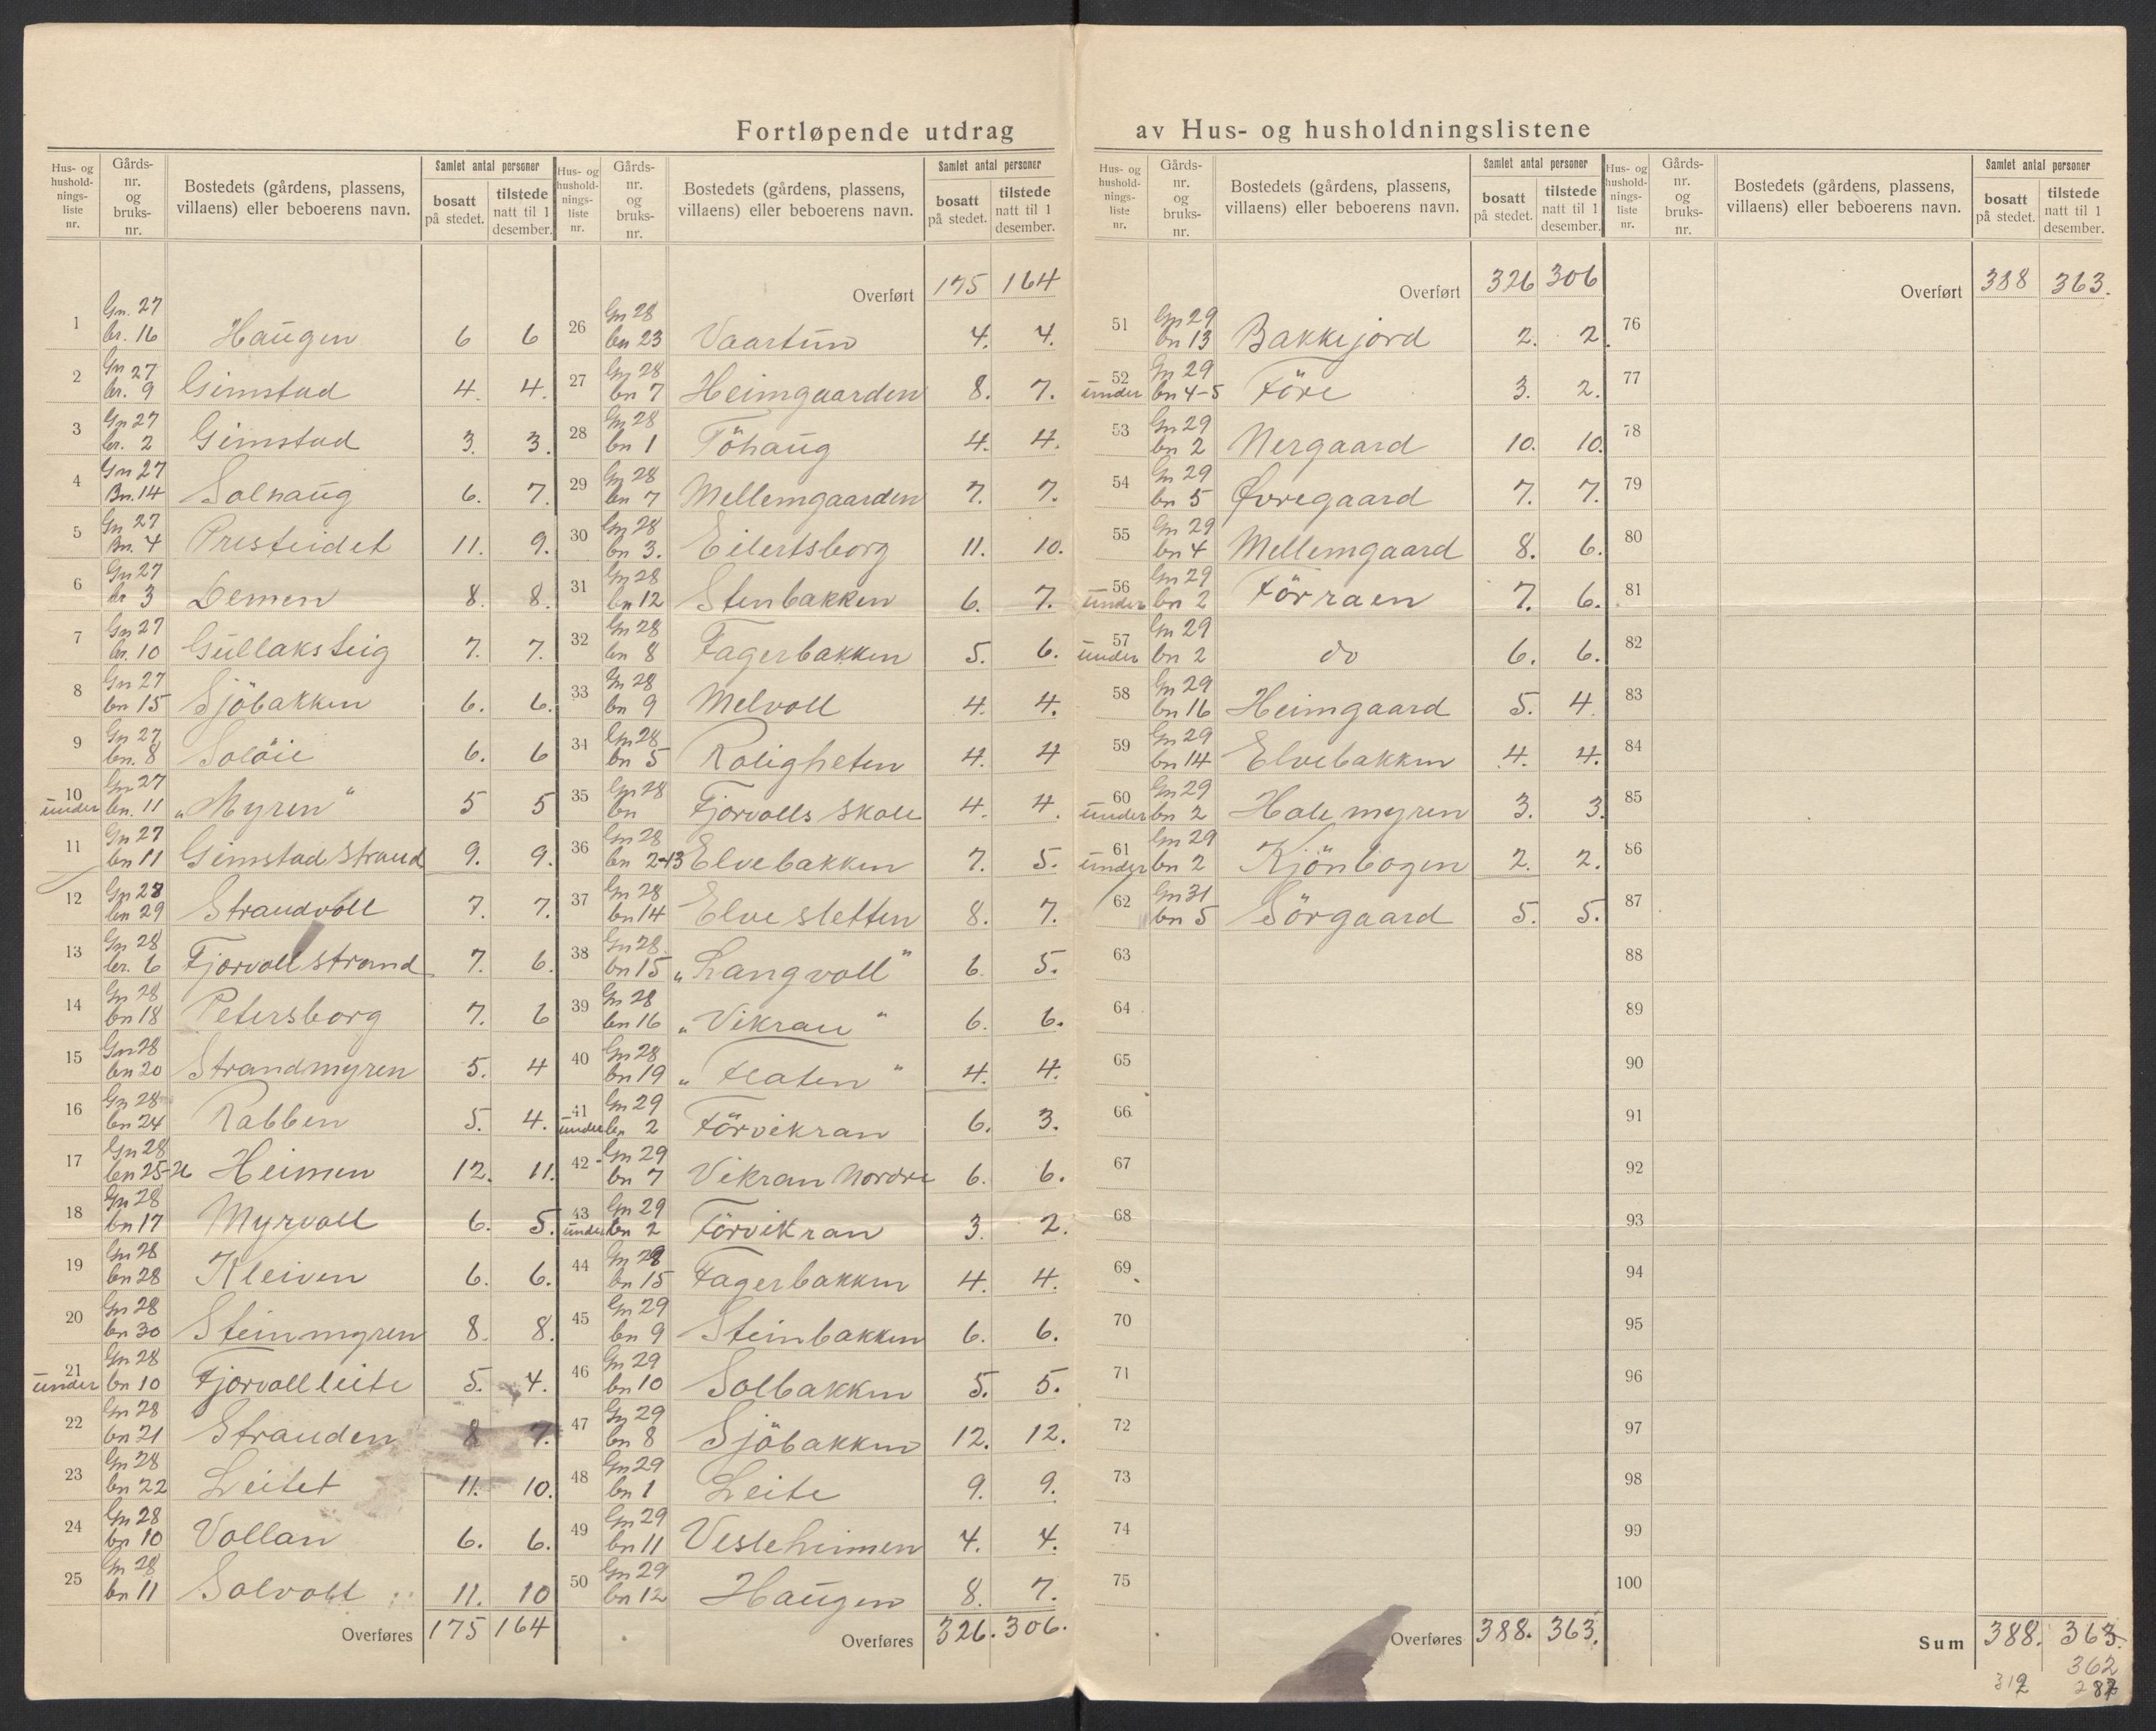 Fortløpende utdrag av Hus- og husholdningslistene
Hus- og husholdnings-liste nr. | Gårds-nr. og bruks-nr. | Bostedets (gårdens, plassens, villaens) eller beboerens navn. | Samlet antal personer bosatt på stedet. | tilstede natt til 1 desember.
1 Gn. 27 br. 16 Haugen 6 6
2 Gn 27 br. 9 Gimstad 4. 4.
3 Gn 27 br. 2 Gimstad 3. 3.
4 Gn 27 Bn. 14 Solhaug 6. 7.
5 Gn 27 Bn. 4 Presteidet 11. 9.
6 Gn 27 br 3 Lemen 8. 8.
7 Gn 27 br. 10 Gullaksteig 7. 7.
8 Gn 27 bn 15 Sjöbakken 6. 6.
9 Gn 27 bn. 8 Soløie 6. 6
10 under Gn 27 bn. 11 „Myren“ 5 5
11 Gn 27 bn 11 Gimstadstrand 9. 9.
12 Gn 28 bn 29 Strandvoll 7. 7.
13 Gn 28 br. 6 Fjorvollstrand 7. 6.
14 Gn 28 bn 18 Petersborg 7. 6
15 Gn 28 bn 20 Strandmyren 5. 4
16 Gn 28 bn 24 Rabben 5. 4.
17 Gn 28 bn 25-26 Heimen 12. 11.
18 Gn 28 bn 17 Myrvoll 6. 5.
19 Gn 28 bn 28 Kleiven 6. 6.
20 Gn 28 bn 30 Steinmyren 8. 8.
21 under Gn 28 bn 10 Fjorvolleite 5. 4.
22 Gn 28 bn 21 Stranden 8 7.
23 Gn 28 bn 22 Leitet 11. 10.
24 Gn 28 bn 10 Vollan 6. 6.
25 Gn 28 bn 11 Solvoll 11. 10
Overføres 175 164
Hus- og husholdnings-liste nr. | Gårds-nr. og bruks-nr. | Bostedets (gårdens, plassens, villaens) eller beboerens navn. | Samlet antal personer bosatt på stedet. | tilstede natt til 1 desember.
Overført 175 164
26 Gn 28 bn 23 Vaartun 4. 4.
27 Gn 28 bn 7 Heimgaarden 8. 7.
28 Gn 28 bn 1 Töhaug 4. 4.
29 Gn 28 bn 7 Mellemgaarden 7. 7.
30 Gn 28 bn 3. Eilertsborg 11. 10.
31 Gn 28 bn 12 Stenbakken 6. 7.
32 Gn 28 bn 8 Fagerbakken 5. 6.
33 Gn 28 bn 9 Melvoll 4. 4.
34 Gn 28 bn 5 Roligheten 4. 4
35 Gn 28 bn Fjorvolls skole 4. 4.
36 Gn 28 bn 2-13 Elvebakken 7. 5.
37 Gn 28 bn 14 Elvesletten 8. 7.
38 Gn 28 bn 15 „Langvoll“ 6. 5.
39 Gn 28 bn 16 „Vikran“ 6. 6.
40 Gn 28 bn 19 „Flaten“ 4. 4.
41 under Gn 29 bn 2 Förvikran 6. 3.
42 Gn 29 bn 7 Vikran Nordre 6. 6.
43 under Gn 29 bn 2 Förvikran 3. 2.
44 Gn 29 bn 15 Fagerbakken 4. 4.
45 Gn 29 bn 9 Steinbakken 6. 6.
46 Gn 29 bn 10 Solbakken 5. 5.
47 Gn 29 bn 8 Sjöbakken 12. 12.
48 Gn 29 bn 1 Leite 9. 9.
49 Gn 29 bn 11 Vesleheimen 4. 4.
50 Gn 29 bn 12 Haugen 8. 7.
Overføres 326. 306.
Hus- og husholdnings-liste nr. | Gårds-nr. og bruks-nr. | Bostedets (gårdens, plassens, villaens) eller beboerens navn. | Samlet antal personer bosatt på stedet. | tilstede natt til 1 desember.
Overført 326 306
51 Gn 29 bn 13 Bakkejord 2. 2.
52 under Gn 29 bn 4-5 Före 3. 2.
53 Gn 29 bn 2 Nergaard 10. 10.
54 Gn 29 bn 5 Øvregaard 7. 7.
55 Gn 29 bn 4 Mellemgaard 8. 6.
56 under Gn 29 bn 2 Förraen 7. 6.
57 under Gn 29 bn 2 do 6. 6.
58 Gn 29 bn 16 Heimgaard 5. 4.
59 Gn 29 bn 14 Elvebakken 4. 4.
60 under Gn 29 bn 2 Holemyren 3. 3.
61 under Gn 29 bn 2 Kjönbogen 2. 2.
62 Gn 31 bn 5 Sörgaard 5. 5.
63
64
65
66
67
68
69
70
71
72
73
74
75
Overføres 388. 363.
Hus- og husholdnings-liste nr. | Gårds-nr. og bruks-nr. | Bostedets (gårdens, plassens, villaens) eller beboerens navn. | Samlet antal personer bosatt på stedet. | tilstede natt til 1 desember.
Overført 388 363.
76
77
78
79
80
81
82
83
84
85
86
87
88
89
90
91
92
93
94
95
96
97
98
99
100
Sum 388. 363.
362
312